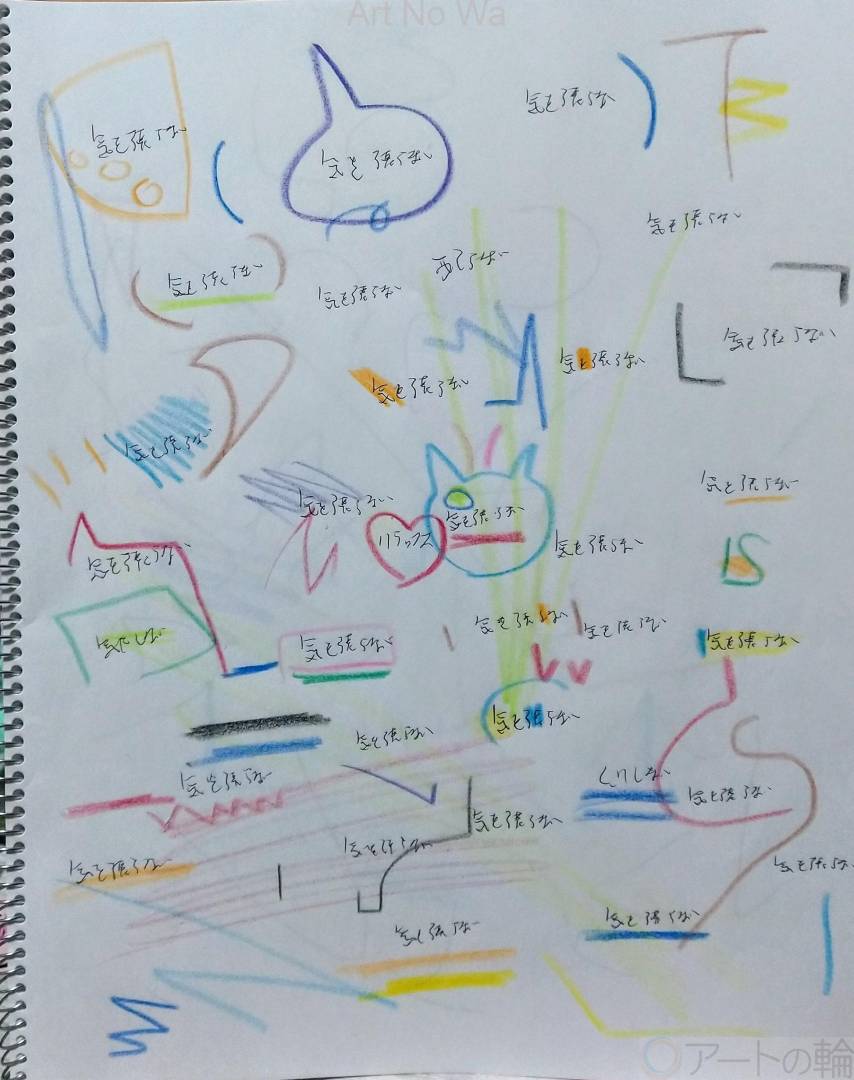 Art No Wa
気を張らない
気を張らない
気を張らない
気を張らない
気を張らない
気を張らない
気を張らない
気を張らない
気を張らない
気を張らない
気を張らない
気を張らない
気を張らない
気を張らない
リラックス
気を張らない
気を張らない
気を張らない
気を張らない
気を張らない
気にしない
気を張らない
気を張らない
気を張らない
気を張らない
気を張らない
気を張らない
気を張らない
気を張らない
気を張らない
気を張らない
気を張らない
気を張らない
アートの輪